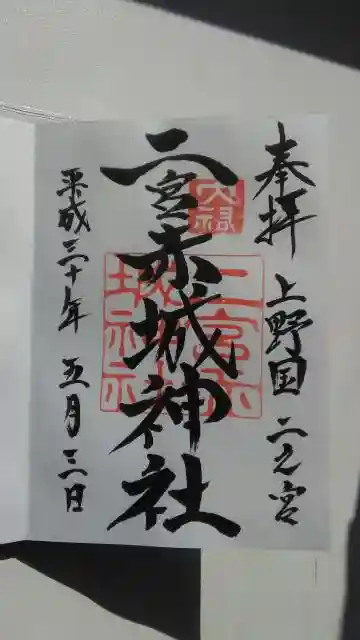 奉拝 上野国 二之宮
二宮赤城神社
平成三十年 五月三日
二宮赤城神社